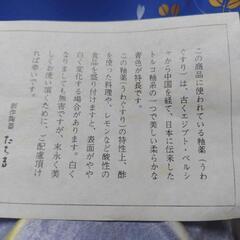 この商品に使われている釉薬（うわ
ぐすり）は、古くエジプト・ペルシ
ャから中国を経て、日本に伝来した
トルコ釉系の一つで美しい柔らかな
青色が特長です。
この釉薬（うわぐすり）の特性上、酢
を使った料理や、レモンなど酸性の
食品を盛り付けますと、表面がやや
白く変化する場合があります。白く
なりましても無害ですが、末永く美
しくお使い頂くために、ご配慮頂け
れば幸いです。
創作陶器
たちき